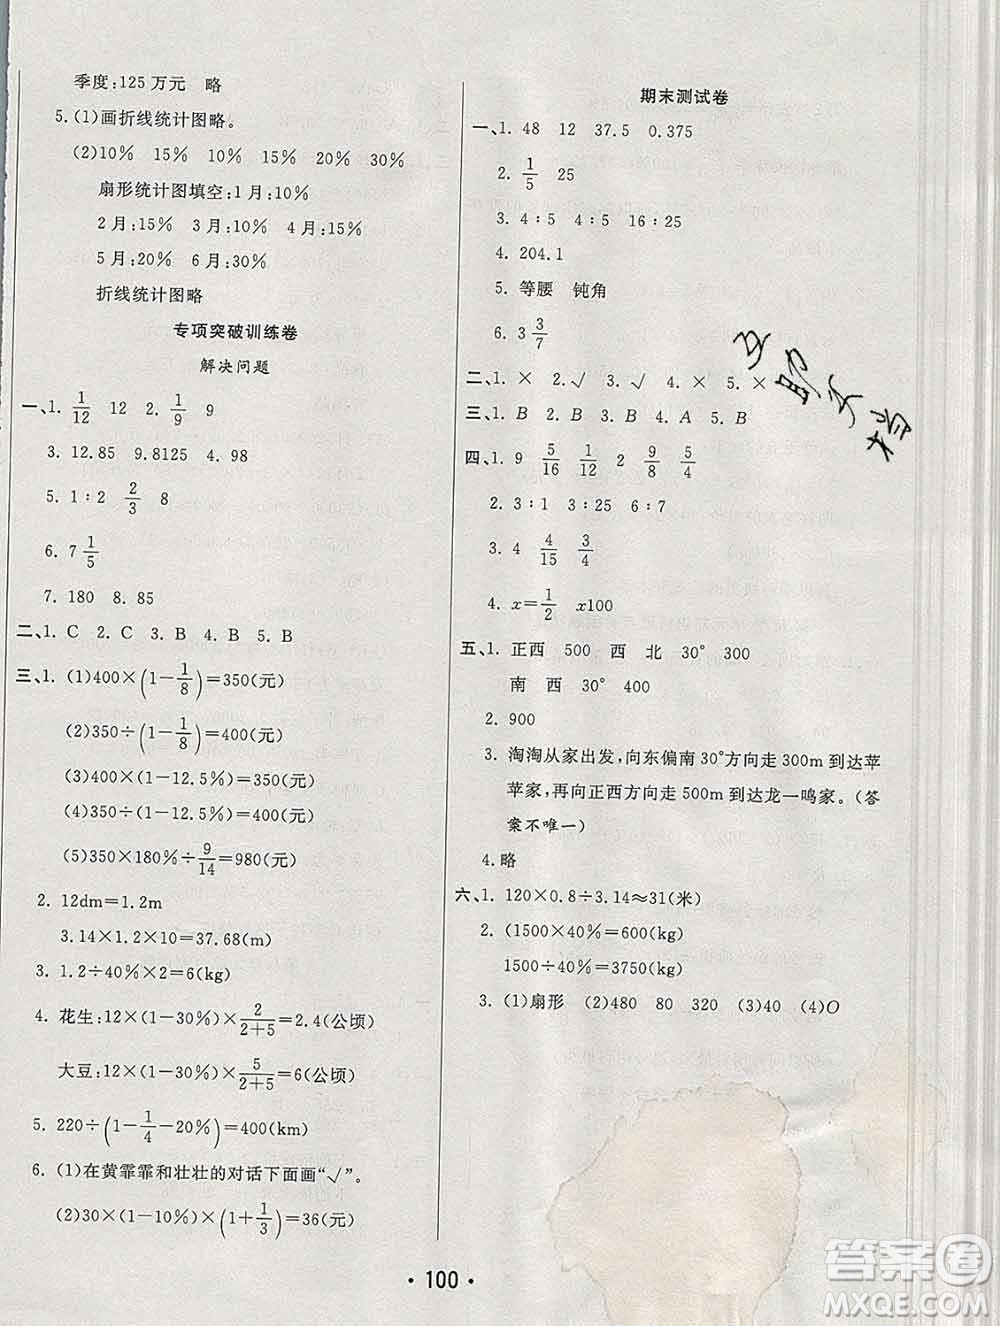 季度:125万元 略
5. (1)画折线统计图略。
(2)10% 15% 10% 15% 20% 30%
扇形统计图填空:1月:10%
2月:15% 3月:10% 4月:15%
5月:20% 6月:30%
折线统计图略
专项突破训练卷
解决问题
一、1. 1/12 12 2. 1/9 9
3. 12.85 9.8125 4. 98
5. 1:2 2/3 8
6. 7 1/5
7. 180 8. 85
二、1. C 2. C 3. B 4. B 5. B
三、1. (1)400×(1-1/8)=350(元)
(2)350÷(1-1/8)=400(元)
(3)400×(1-12.5%)=350(元)
(4)350÷(1-12.5%)=400(元)
(5)350×180%÷9/14=980(元)
2. 12dm=1.2m
3.14×1.2×10=37.68(m)
3. 1.2÷40%×2=6(kg)
4. 花生:12×(1-30%)×2/(2+5)=2.4(公顷)
大豆:12×(1-30%)×5/(2+5)=6(公顷)
5. 220÷(1-1/4-20%)=400(km)
6. (1)在黄霏霏和壮壮的对话下面画“√”。
(2)30×(1-10%)×(1+1/3)=36(元)
期末测试卷
一、1. 48 12 37.5 0.375
2. 1/5 25
3. 4:5 4:5 16:25
4. 204.1
5. 等腰 钝角
6. 3 3/7
二、1. × 2. √ 3. √ 4. × 5. ×
三、1. B 2. B 3. B 4. A 5. B
四、1. 9 5/16 1/12 2 9/8 5/4
2. 3:1 3:25 6:7
3. 4 4/15 3/4
4. x=1/2 x100
五、1. 正西 500 西 北 30° 300
南 西 30° 400
2. 900
3. 淘淘从家出发,向东偏南30°方向走300m到达苹
苹家,再向正西方向走500m到达龙一鸣家。(答
案不唯一)
4. 略
六、1. 120×0.8÷3.14≈31(米)
2. (1500×40%=600(kg)
1500÷40%=3750(kg)
3. (1)扇形 (2)480 80 320 (3)40 (4)O
互助文档
· 100 ·
答案圈
MXQE.COM